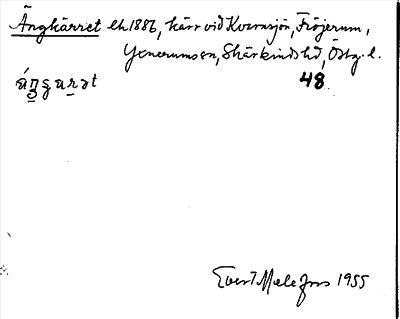 Ängkärret ek 1886, kärr vid Kvarnsjön, Fröjerum,
Yxnerums sn, Skärkinds hd, Östg. l.
48
Evert Melefors 1955